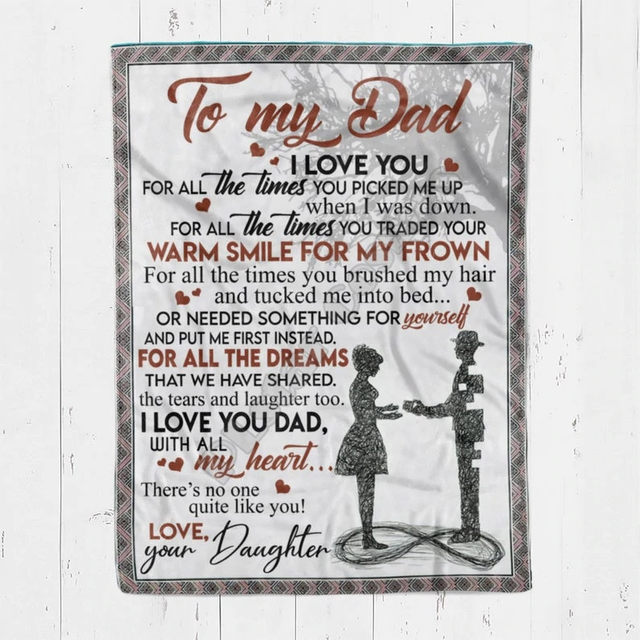 To my Dad
I LOVE YOU
FOR ALL the times YOU PICKED ME UP
when I was down.
FOR ALL the times YOU TRADED YOUR
WARM SMILE FOR MY FROWN
For all the times you brushed my hair
and tucked me into bed...
OR NEEDED SOMETHING FOR yourself
AND PUT ME FIRST INSTEAD.
FOR ALL THE DREAMS
THAT WE HAVE SHARED.
the tears and laughter too.
I LOVE YOU DAD,
WITH ALL
my heart...
There's no one
quite like you!
LOVE,
your Daughter